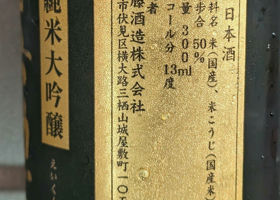 日本酒
料名 米(国産)、米こうじ(国産米)
歩合 50%
量 300ml
コール分 13度
者
酒造株式会社
市伏見区横大路三栖山城屋敷町一〇
純米大吟醸
えいくん